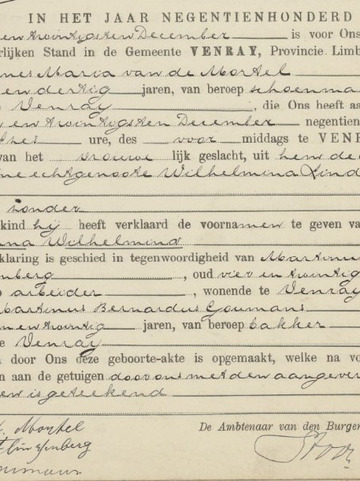 IN HET JAAR NEGENTIENHONDERD
en twintigsten December is voor Ons
rlijken Stand in de Gemeente VENRAY, Provincie Limb
nes Maria van de Mortel
en dertig jaren, van beroep schoenma
Venray , die Ons heeft aa
en twintigsten December negentien
ure, des voor middags te VENR
van het vrouwe lijk geslacht, uit hem de
ne echtgenoote Wilhelmina Lind
zonder
kind hij heeft verklaard de voornamen te geven va
na Wilhelmina
klaring is geschied in tegenwoordigheid van Martinus
nberg , oud vier en twintig
arbeider , wonende te Venray
Martinus Bernardus Goumans
en twintig jaren, van beroep bakker
e Venray
n door Ons deze geboorte-akte is opgemaakt, welke na vo
n aan de getuigen door ons met den aangever
en is geteekend
v. Mortel
De Ambtenaar van den Burger
nberg
oumans